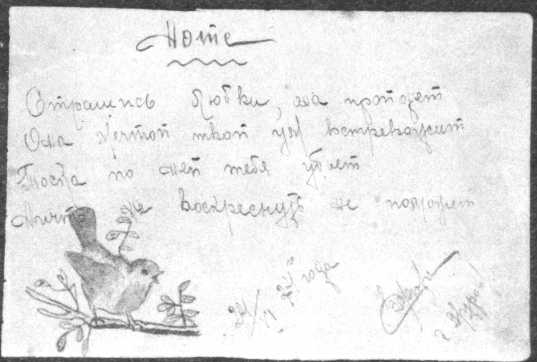 Страшись любви, она пройдет
Она мечтой твой ум встревожит
Тоска по ней тебя убьет
Ничто воскреснуть не поможет
года
г.